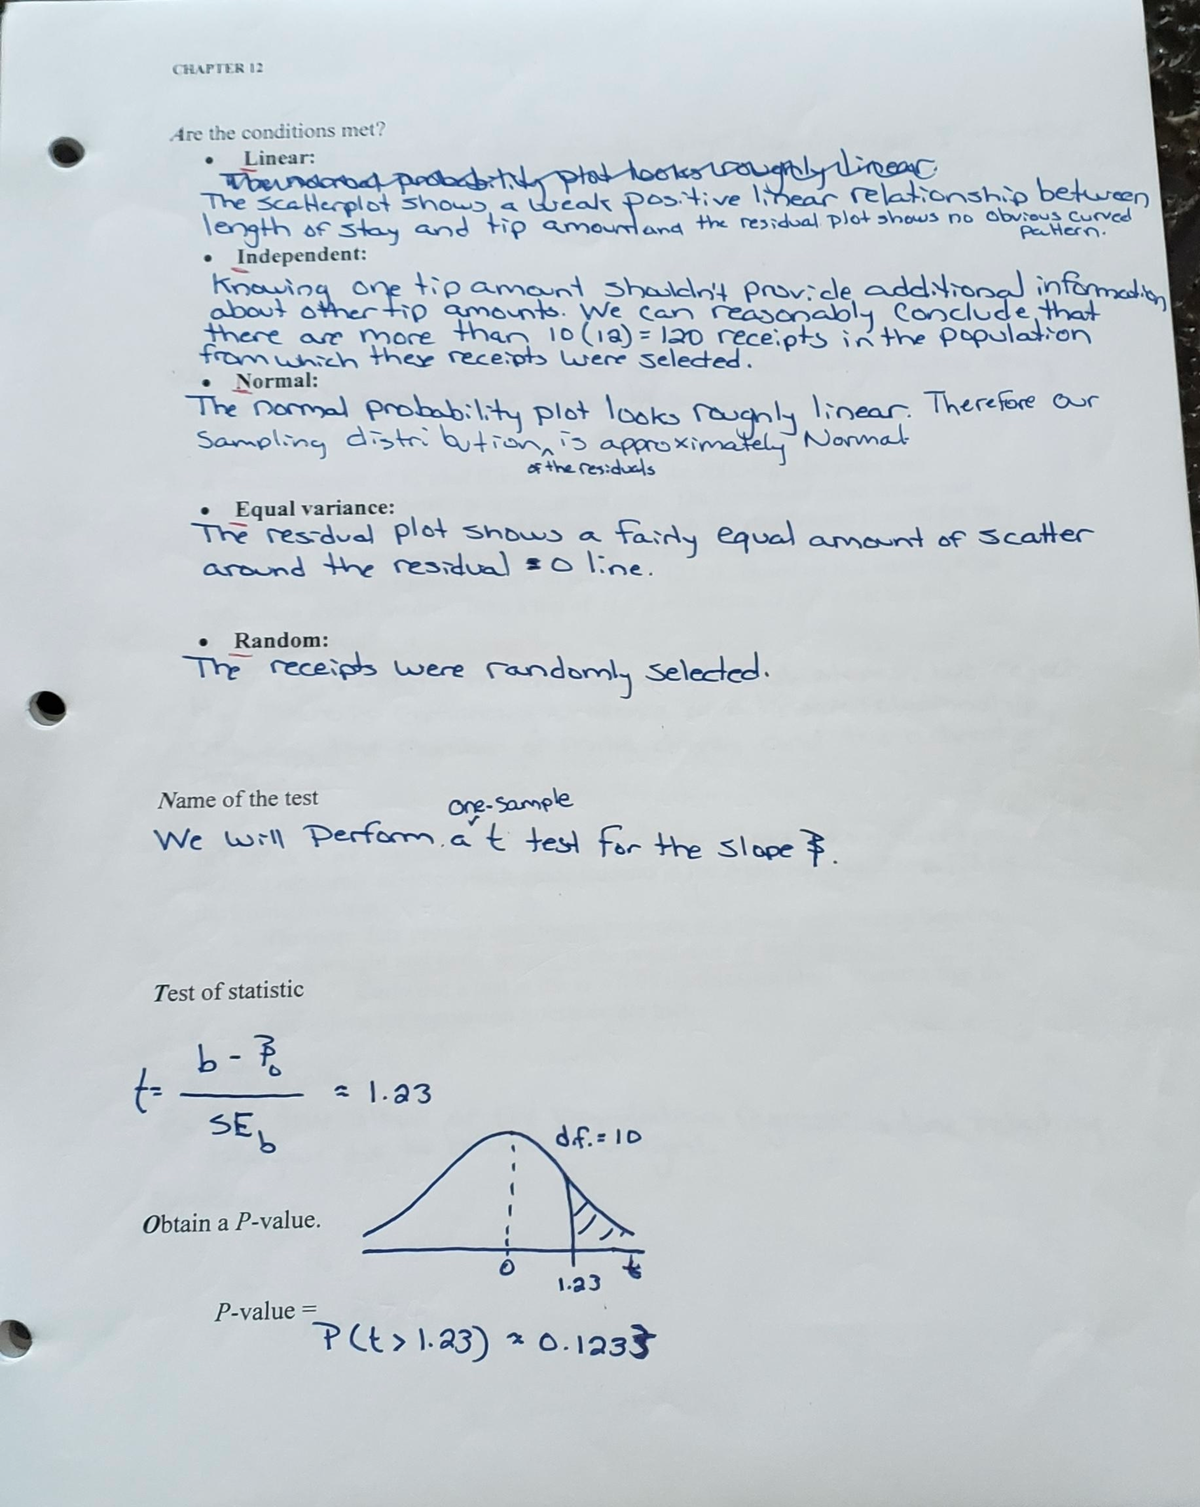 CHAPTER 12
Are the conditions met?
• Linear:
The normal probability plot looks roughly linear.
The scatterplot shows a weak positive linear relationship between
length of stay and tip amount and the residual plot shows no obvious curved
pattern.
• Independent:
Knowing one tip amount shouldn't provide additional information
about other tip amounts. We can reasonably conclude that
there are more than 10(12) = 120 receipts in the population
from which these receipts were selected.
• Normal:
The normal probability plot looks roughly linear. Therefore our
sampling distribution ^ is approximately Normal
of the residuals
• Equal variance:
The residual plot shows a fairly equal amount of scatter
around the residual = 0 line.
• Random:
The receipts were randomly selected.
Name of the test
one-sample
We will perform a t test for the slope β.
Test of statistic
t = b - β₀ / SE_b ≈ 1.23
d.f. = 10
Obtain a P-value.
0
1.23
t
P-value =
P(t > 1.23) ≈ 0.123